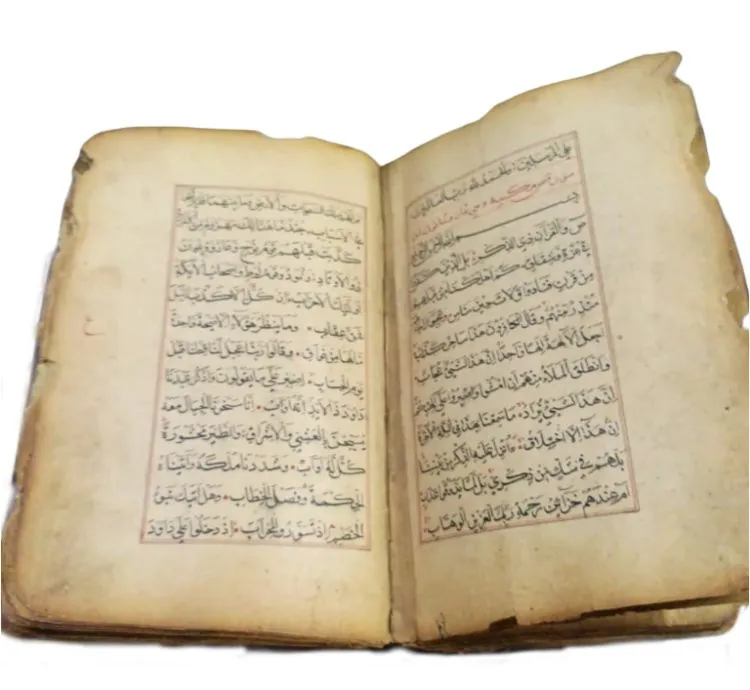 على المرسلين والحمد لله رب العالمين
سورة ص مكية وهي ثمان وثمانون آية
بسم الله الرحمن الرحيم
ص وَالْقُرْآنِ ذِي الذِّكْرِ بَلِ الَّذِينَ كَفَرُوا
فِي عِزَّةٍ وَشِقَاقٍ كَمْ اَهْلَكْنَا مِنْ قَبْلِهِمْ
مِنْ قَرْنٍ فَنَادَوْا وَلَاتَ حِينَ مَنَاصٍ وَعَجِبُوا اَنْ
مُنْذِرٌ مِنْهُمْ وَقَالَ الْكَافِرُونَ هَذَا سَاحِرٌ كَذَّابٌ
اَجَعَلَ الْآلِهَةَ اِلَهًا وَاحِدًا اِنَّ هَذَا لَشَيْءٌ عُجَابٌ
وَانْطَلَقَ الْمَلَأُ مِنْهُمْ اَنِ امْشُوا وَاصْبِرُوا عَلَى
اِنَّ هَذَا لَشَيْءٌ يُرَادُ مَا سَمِعْنَا بِهَذَا فِي الْمِلَّةِ الْآخِرَةِ
اِنْ هَذَا اِلَّا اخْتِلَاقٌ ءَاُنْزِلَ عَلَيْهِ الذِّكْرُ مِنْ بَيْنِنَا
بَلْ هُمْ فِي شَكٍّ مِنْ ذِكْرِي بَلْ لَمَّا يَذُوقُوا عَذَابِ
اَمْ عِنْدَهُمْ خَزَائِنُ رَحْمَةِ رَبِّكَ الْعَزِيزِ الْوَهَّابِ
اَمْ لَهُمْ مُلْكُ السَّمَوَاتِ وَالْاَرْضِ وَمَا بَيْنَهُمَا فَلْيَرْتَقُوا
فِي الْاَسْبَابِ جُنْدٌ مَا هُنَالِكَ مَهْزُومٌ مِنَ الْاَحْزَابِ
كَذَّبَتْ قَبْلَهُمْ قَوْمُ نُوحٍ وَعَادٌ وَفِرْعَوْنُ
ذُو الْاَوْتَادِ وَثَمُودُ وَقَوْمُ لُوطٍ وَاَصْحَابُ الْاَيْكَةِ
اُولَئِكَ الْاَحْزَابُ اِنْ كُلٌّ اِلَّا كَذَّبَ الرُّسُلَ
فَحَقَّ عِقَابِ وَمَا يَنْظُرُ هَؤُلَاءِ اِلَّا صَيْحَةً وَاحِدَةً
مَا لَهَا مِنْ فَوَاقٍ وَقَالُوا رَبَّنَا عَجِّلْ لَنَا قِطَّنَا قَبْلَ
يَوْمِ الْحِسَابِ اِصْبِرْ عَلَى مَا يَقُولُونَ وَاذْكُرْ عَبْدَنَا
دَاوُدَ ذَا الْاَيْدِ اِنَّهُ اَوَّابٌ اِنَّا سَخَّرْنَا الْجِبَالَ مَعَهُ
يُسَبِّحْنَ بِالْعَشِيِّ وَالْاِشْرَاقِ وَالطَّيْرَ مَحْشُورَةً
كُلٌّ لَهُ اَوَّابٌ وَشَدَدْنَا مُلْكَهُ وَآتَيْنَاهُ
الْحِكْمَةَ وَفَصْلَ الْخِطَابِ وَهَلْ اَتَيكَ نَبَؤُ
الْخَصْمِ اِذْ تَسَوَّرُوا الْمِحْرَابَ اِذْ دَخَلُوا عَلَى دَاوُدَ
ع